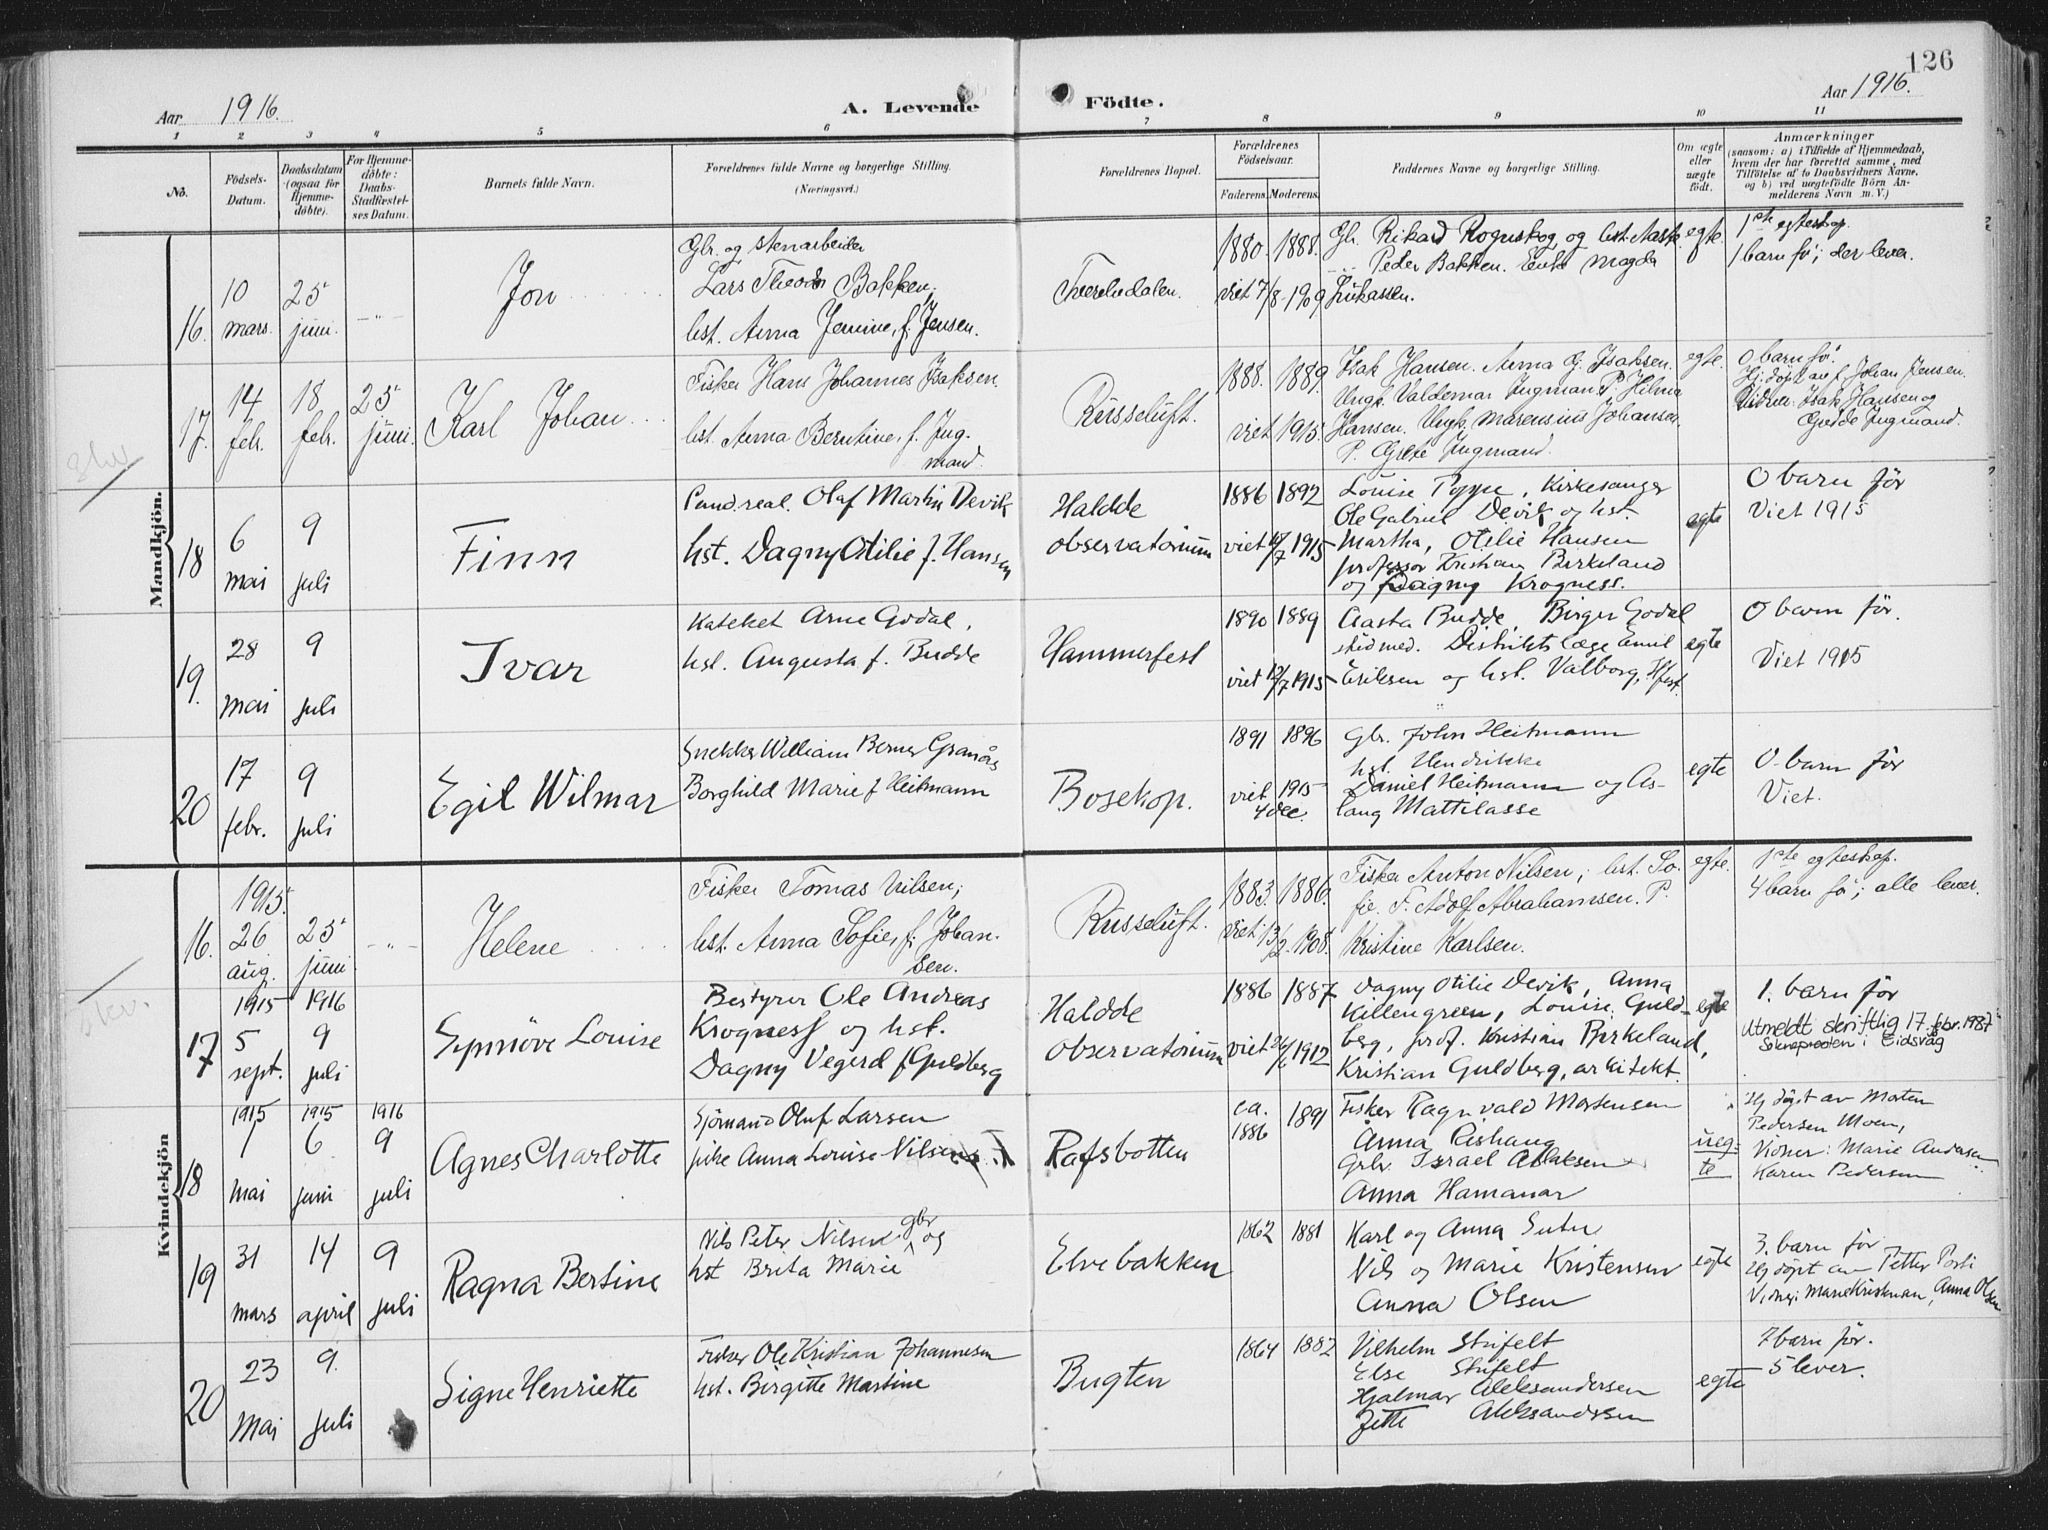 126
Aar 1916.
A. Levende Födte.
Aar 1916.
1 2 3 4 5 6 7 8 9 10 11
No.
Födsels-Datum.
Daabsdatum (ogsaa for Hjemmedöbte).
For Hjemmedöbte: Daabs-Stadfæstelses Datum.
Barnets fulde Navn.
Forældrenes fulde Navne og borgerlige Stilling.
(Næringsvei.)
Forældrenes Bopæl.
Forældrenes Födselsaar.
Faderens. Moderens.
Faddernes Navne og borgerlige Stilling.
Om ægte eller uægte födt.
Anmærkninger
(saasom: a) i Tilfælde af Hjemmedaab, hvem der har forrettet samme, med Tilföielse af to Daabsvidners Navne, og b) ved uægtefödte Börn Anmelderens Navn m. V.)
Mandkjön.
16. 10 mars. 25 juni. -"-
Jon
Gbr. og stenarbeider
Lars Theodor Bakken;
hst. Anna Jemine, f. Jensen.
Tverelvdalen.
1880. 1888.
viet 7/8-1909
Gbr. Rikard Rognskog og hst. Aaste.
Peder Bakken. Enke Magda
egte.
1ste egteskap.
1 barn fö; der lever.
17. 14 febr. 18 febr. 25 juni.
Karl Johan
Fisker Hans Johannes Isaksen.
hst. Anna Berntine, f. Ingmand.
Russeluft.
1888. 1889.
viet 1915.
Isak Hansen. Anna G. Isaksen.
Ungk. Valdemar Ingman. P. Hilma
Hansen. Ungk. Marensius Johansen.
P. Grete Ingmand.
egte.
0 barn fö.
Hj. döpt av f. Johan Jensen.
Vidner: Isak Hansen og
Ingmand.
18 6 mai 9 juli
Finn
Cand. real. Olaf Martin Devik
hst. Dagny Otilie f. Hansen
Haldde
observatorium
1886 1892
viet /7 1915
Louise Poppe, Kirkesanger
Ole Gabriel Devik og hst.
Martha, Otilie Hansen
professor Kristian Birkeland
og Dagny Krogness.
egte
0 barn för
Viet 1915
19. 28 mai 9 juli
Ivar
Kateket Arne Godal,
hst. Augusta f. Budde
Hammerfest
1890 1889
viet 12/7 1915
Aasta Budde, Birger Godal
stud med. Distriktslæge Emil
Eriksen og hst. Valborg, Hfest.
egte
0 barn för.
Viet 1915
20 17 febr. 9 juli
Egil Wilmar
Snekker William Berner Granås
Borghild Marie f Heitmann
Bosekop.
1891 1896
viet 1915
4 dec.
Gbr. John Heitmann
hst. Hendrikke
Daniel Heitmann og As-
laug Mattilasse
egte
0 barn för
Viet.
Kvindekjön
16. 1915. 26 aug. 25 juni -"-
Helene
Fisker Tomas Nilsen;
hst. Anna Sofie, f. Johansen.
Russeluft.
1883. 1886.
viet 13/2. 1908.
Fisker Anton Nilsen; hst. So-
fie. F. Adolf Abrahamsen. P.
Kristine Karlsen.
egte.
1ste egteskap.
4 barn fö; alle lever.
17 1915 5 sept. 1916 9 juli
Synnöve Louise
Bestyrer Ole Andreas
Krogness og hst.
Dagny Vegerd f Guldberg
Haldde
observatorium
1886 1887
viet 26/6 1912
Dagny Otilie Devik, Anna
Killengreen, Louise Guld-
berg, prof. Kristian Birkeland,
Kristian Guldberg, arkitekt.
egte
1. barn för
Utmeldt skriftlig 17. febr. 1937
Sokneprosten i Eidsvåg
18 1915 1 mai 1915 6 juni 1916 9 juli
Agnes Charlotte
Sjömand Oluf Larsen
pike Anna Louise Nilsen
Rafsbotten
ca. 1886 1891
Fisker Ragnvald Mortensen
Anna Pishang
Grbr. Israel Aslaksen
Anna Hamanar
ueg-
te
Hj döpt av Morten
Pedersen Moen,
Vidner: Marie Andersen
Karen Pedersen
19 31 mars 14 april 9 juli
Ragna Bertine
Nils Peter Nilsen gbr og
hst Brita Marie
Elvebakken
1862 1881
Karl og Anna Suter
Nils og Marie Kristensen
Anna Olsen
egte
3. barn för
Hj döpt av Petter Posti
Vidner: Marie Kristensen, Anna Olsen
20 23 mai 9. juli
Signe Henriette
Fisker Ole Kristian Johannesen
hst. Birgitte Martine
Bugten
1864 1882
Vilhelm Strifelt
Else Strifelt
Hjalmar Aleksandersen
Jette Aleksandersen
egte
7 barn för.
5 lever.